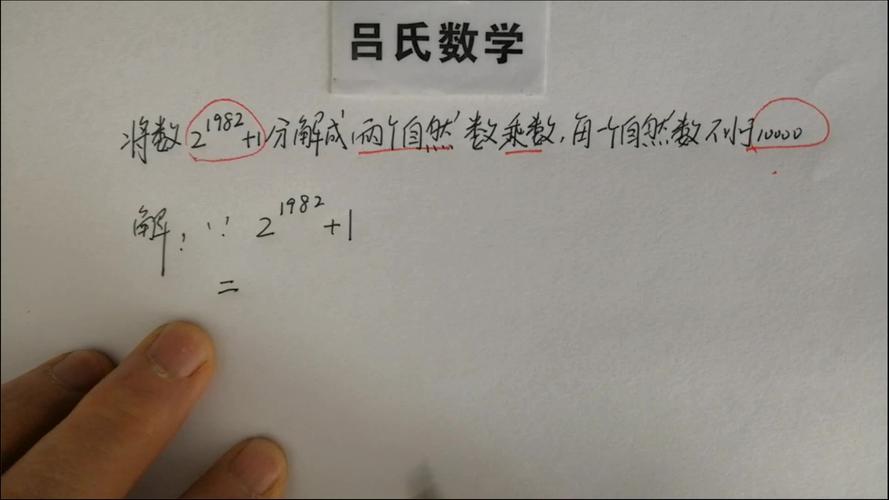 吕氏数学
将数2^1982+1分解成两个自然数乘数,每一个自然数不小于10000
解:∵ 2^1982+1
=